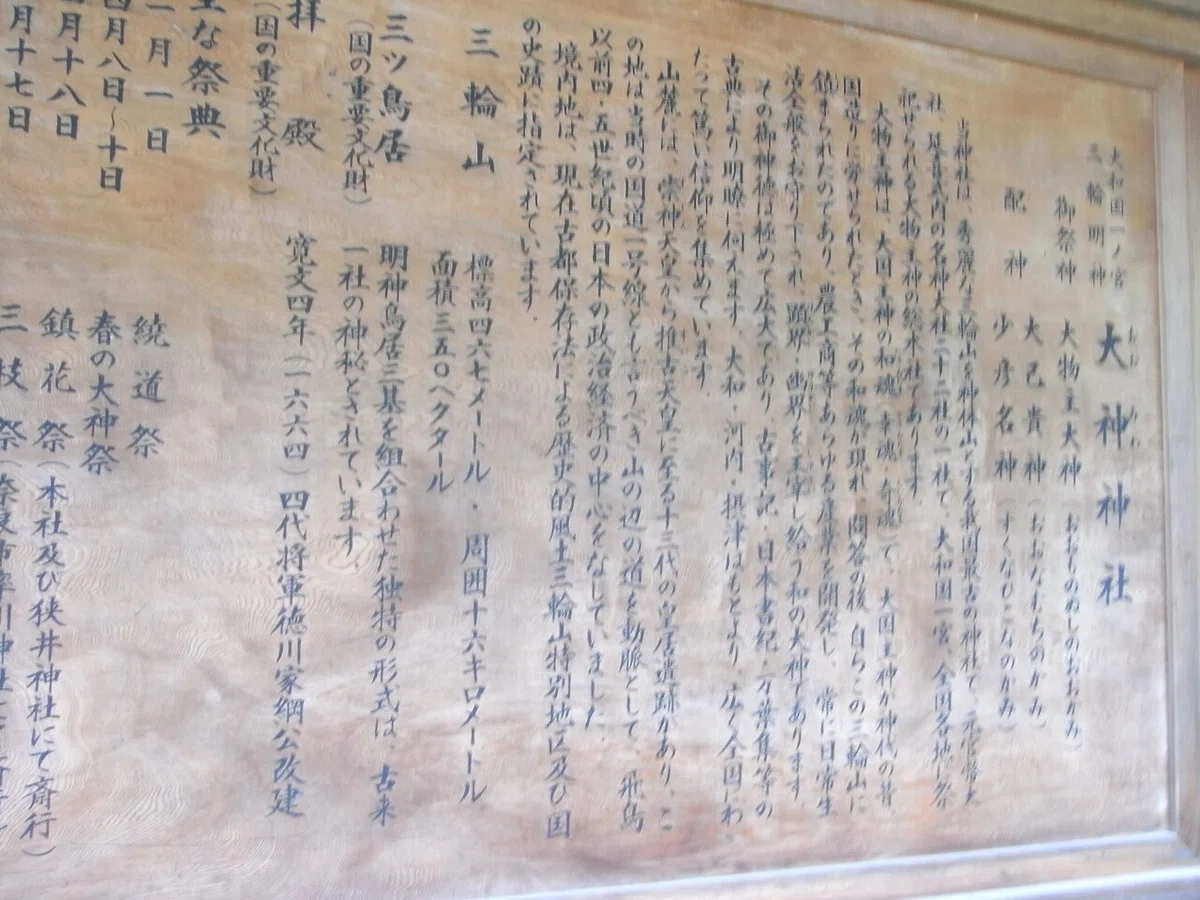 大和国一ノ宮
三輪明神
大神社
おおみわ
御祭神 大物主大神(おおものぬしのおおかみ)
大己貴神(おおなむちのかみ)
配神 少彦名神(すくなひこなのかみ)
当神社は、秀麗なる三輪山を神体山とする我国最古の神社で、元官幣大
社、延喜式内の名神大社二十二社の一社で、大和国一宮、全国各地に祭
祀せられる大物主神の総本社であります。
大物主神は、大国主神の和魂(幸魂・奇魂)で、大国主神が神代の昔、
国造りに労せられたとき、その和魂が現れ、問答の後、自らこの三輪山に
鎮まられたのであり、農工商等あらゆる産業を開発し、常に日常生
活全般をお守り下され、顕界・幽界を主宰し給う和の大神であります。
その御神徳は極めて広大であり、古事記・日本書紀・万葉集等の
古典により明瞭に伺えます。大和・河内・摂津はもとより、広く全国にわ
たって篤い信仰を集めています。
山麓には、崇神天皇から推古天皇に至る十三代の皇居遺跡があり、こ
の地は当時の国道一号線とも言うべき山の辺の道を動脈として、飛鳥
以前四・五世紀頃の日本の政治経済の中心をなしていました。
境内地は、現在古都保存法による歴史的風土三輪山特別地区及び国
の史蹟に指定されています。
三輪山 標高四六七メートル・周囲十六キロメートル
面積三五〇ヘクタール
三ツ鳥居 明神鳥居三基を組合わせた独特の形式は、古来
(国の重要文化財) 一社の神秘とされています。
拝殿 寛文四年(一六六四)四代将軍徳川家綱公改建
(国の重要文化財)
主な祭典
一月一日 繞道祭
四月八日〜十日 春の大神祭
四月十八日 鎮花祭(本社及び狭井神社にて斎行)
月十七日 三枝祭(奈良市率川神社にて斎行)